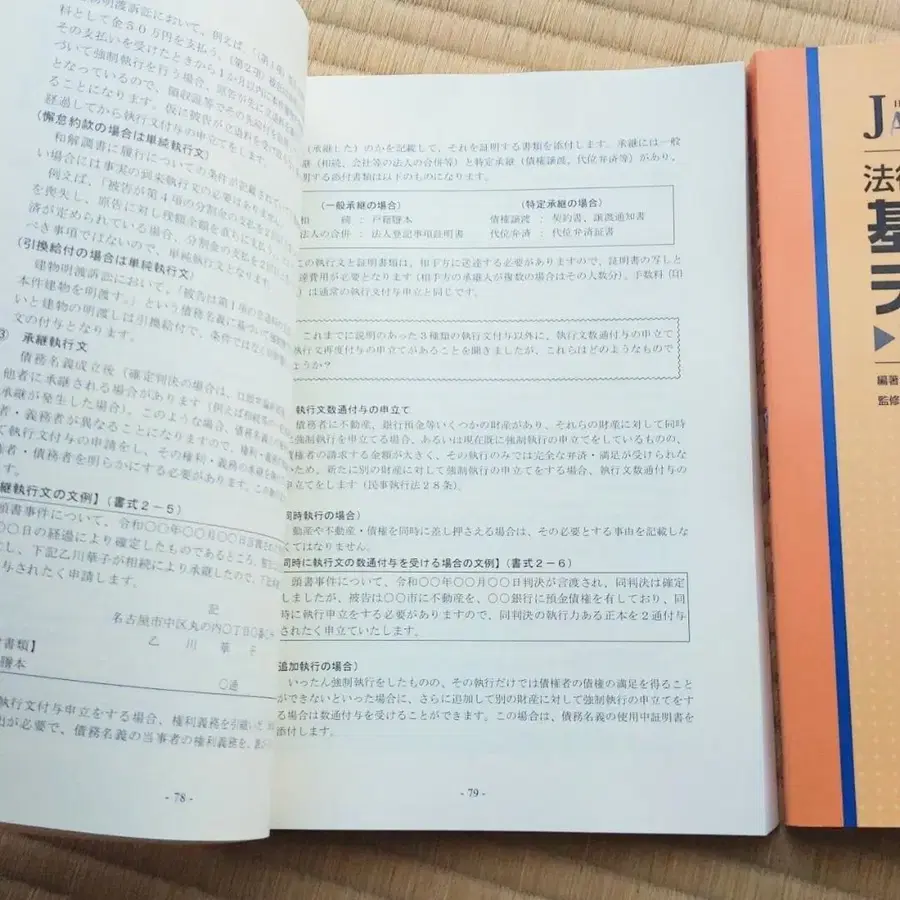 物明渡訴訟において、例えば、「(第1項)
料として金５０万円を支払う。(第2項)
その支払いを受けたときから1か月以内に
づいて強制執行を行う場合、原告が先に立退料を
となっているので、領収証等でその先給付を証
ることになります。仮に被告が立退料を受け
経過してから執行文付与の申立てをします。
(懈怠約款の場合は単純執行文)
和解調書に履行についての条件が記載されてい
い場合には事実の到来執行文の必要はありません。
例えば、「被告が第４項の分割金の支払を
を喪失し、原告に対し残額全額を直ちに支払う
済が定められている場合、分割金の支払を
べき事項ではないので、単純執行文となります。
(引換給付の場合は単純執行文)
建物明渡訴訟において、「被告は第１項の
本件建物を明渡す。」という債務名義に基づいて
いと建物の明渡しは引換給付で、条件ではなく
文の付与となります。
③ 承継執行文
債務名義成立後(確定判決の場合は、口頭弁論終結
他者に承継される場合があります(例えば相続
承継が発生した場合)。このような場合、債務名義の
者・義務者が異なることになりますので、権利・義務
て執行文付与の申請をし、その権利・義務の承継
権者・債務者を明らかにする必要があります。
す。
継執行文の文例】(書式２－５)
頭書事件について、令和〇〇年〇〇月〇〇日言渡
〇〇日の経過により確定したものであるところ、
し、下記乙川華子が相続により承継したので、
与されたく申請します。
記
名古屋市中区丸の内〇丁目〇番
乙 川 華 子
書類】
謄本
〇通
執行文付与申立をする場合、権利義務を引継いだ
出が必要で、債務名義の当事者の権利義務を、
- 78 -
(承継した)のかを記載して、それを証明する書類を添付します。承継には一般
継(相続、会社等の法人の合併等)と特定承継(債権譲渡、代位弁済等)があり、
明する添付書類は以下のものになります。
(一般承継の場合) (特定承継の場合)
相 続 : 戸籍謄本 債権譲渡 : 契約書、譲渡通知書
法人の合併 : 法人登記事項証明書 代位弁済 : 代位弁済証書
この執行文と証明書類は、相手方に送達する必要がありますので、証明書の写しと
達費用が必要となります(相手方の承継人が複数の場合はその人数分)。手数料(印
)は通常の執行文付与と同じです。
これまでに説明のあった３種類の執行文付与以外に、執行文数通付与の申立て
執行文再度付与の申立てがあることを聞きましたが、これらはどのようなもので
ょうか？
執行文数通付与の申立て
債務者に不動産、銀行預金等いくつかの財産があり、それらの財産に対して同時
に強制執行を申立てる場合、あるいは現在既に強制執行の申立てをしているものの、
債権者の請求する金額が大きく、その執行のみでは完全な弁済・満足が受けられな
いため、新たに別の財産に対して強制執行の申立てをする場合、執行文数通付与の
申立てをします(民事執行法２８条)。
同時執行の場合)
動産や不動産・債権を同時に差し押さえる場合は、その必要とする事由を記載しな
くてはなりません。
同時に執行文の数通付与を受ける場合の文例】(書式２－６)
頭書事件について、令和〇〇年〇〇月〇〇日判決が言渡され、同判決は確定
しましたが、被告は〇〇市に不動産を、〇〇銀行に預金債権を有しており、同
時に執行申立をする必要がありますので、同判決の執行力ある正本を２通付与
されたく申立ていたします。
追加執行の場合)
いったん強制執行をしたものの、その執行だけでは債権者の債権の満足を得ること
ができないといった場合に、さらに追加して別の財産に対して強制執行の申立てを
する場合は数通付与を受けることができます。この場合は、債務名義の使用中証明書を
添付します。
- 79 -
法
基
編著
監修